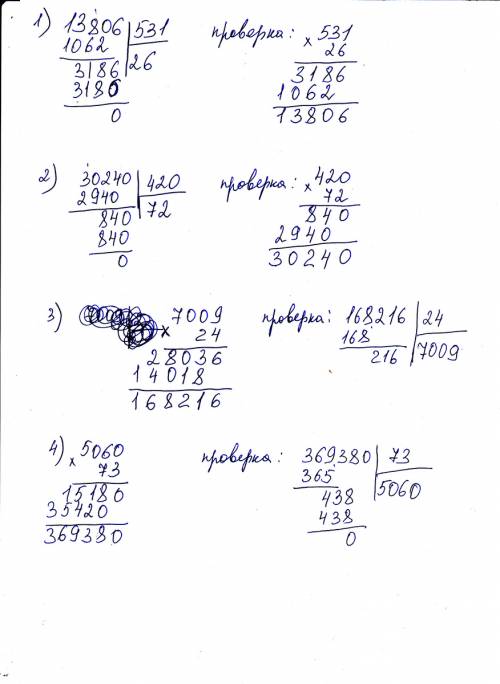 1) 13806 531 проверка: × 531
1062 26 26
3186 3186
3186 1062
0 13806
2) 30240 420 проверка: × 420
2940 72 72
840 840
840 2940
0 30240
3) × 7009 проверка: 168216 24
24 168 7009
28036 216
14018
168216
4) × 5060 проверка: 369380 73
73 365 5060
15180 438
35420 438
369380 0